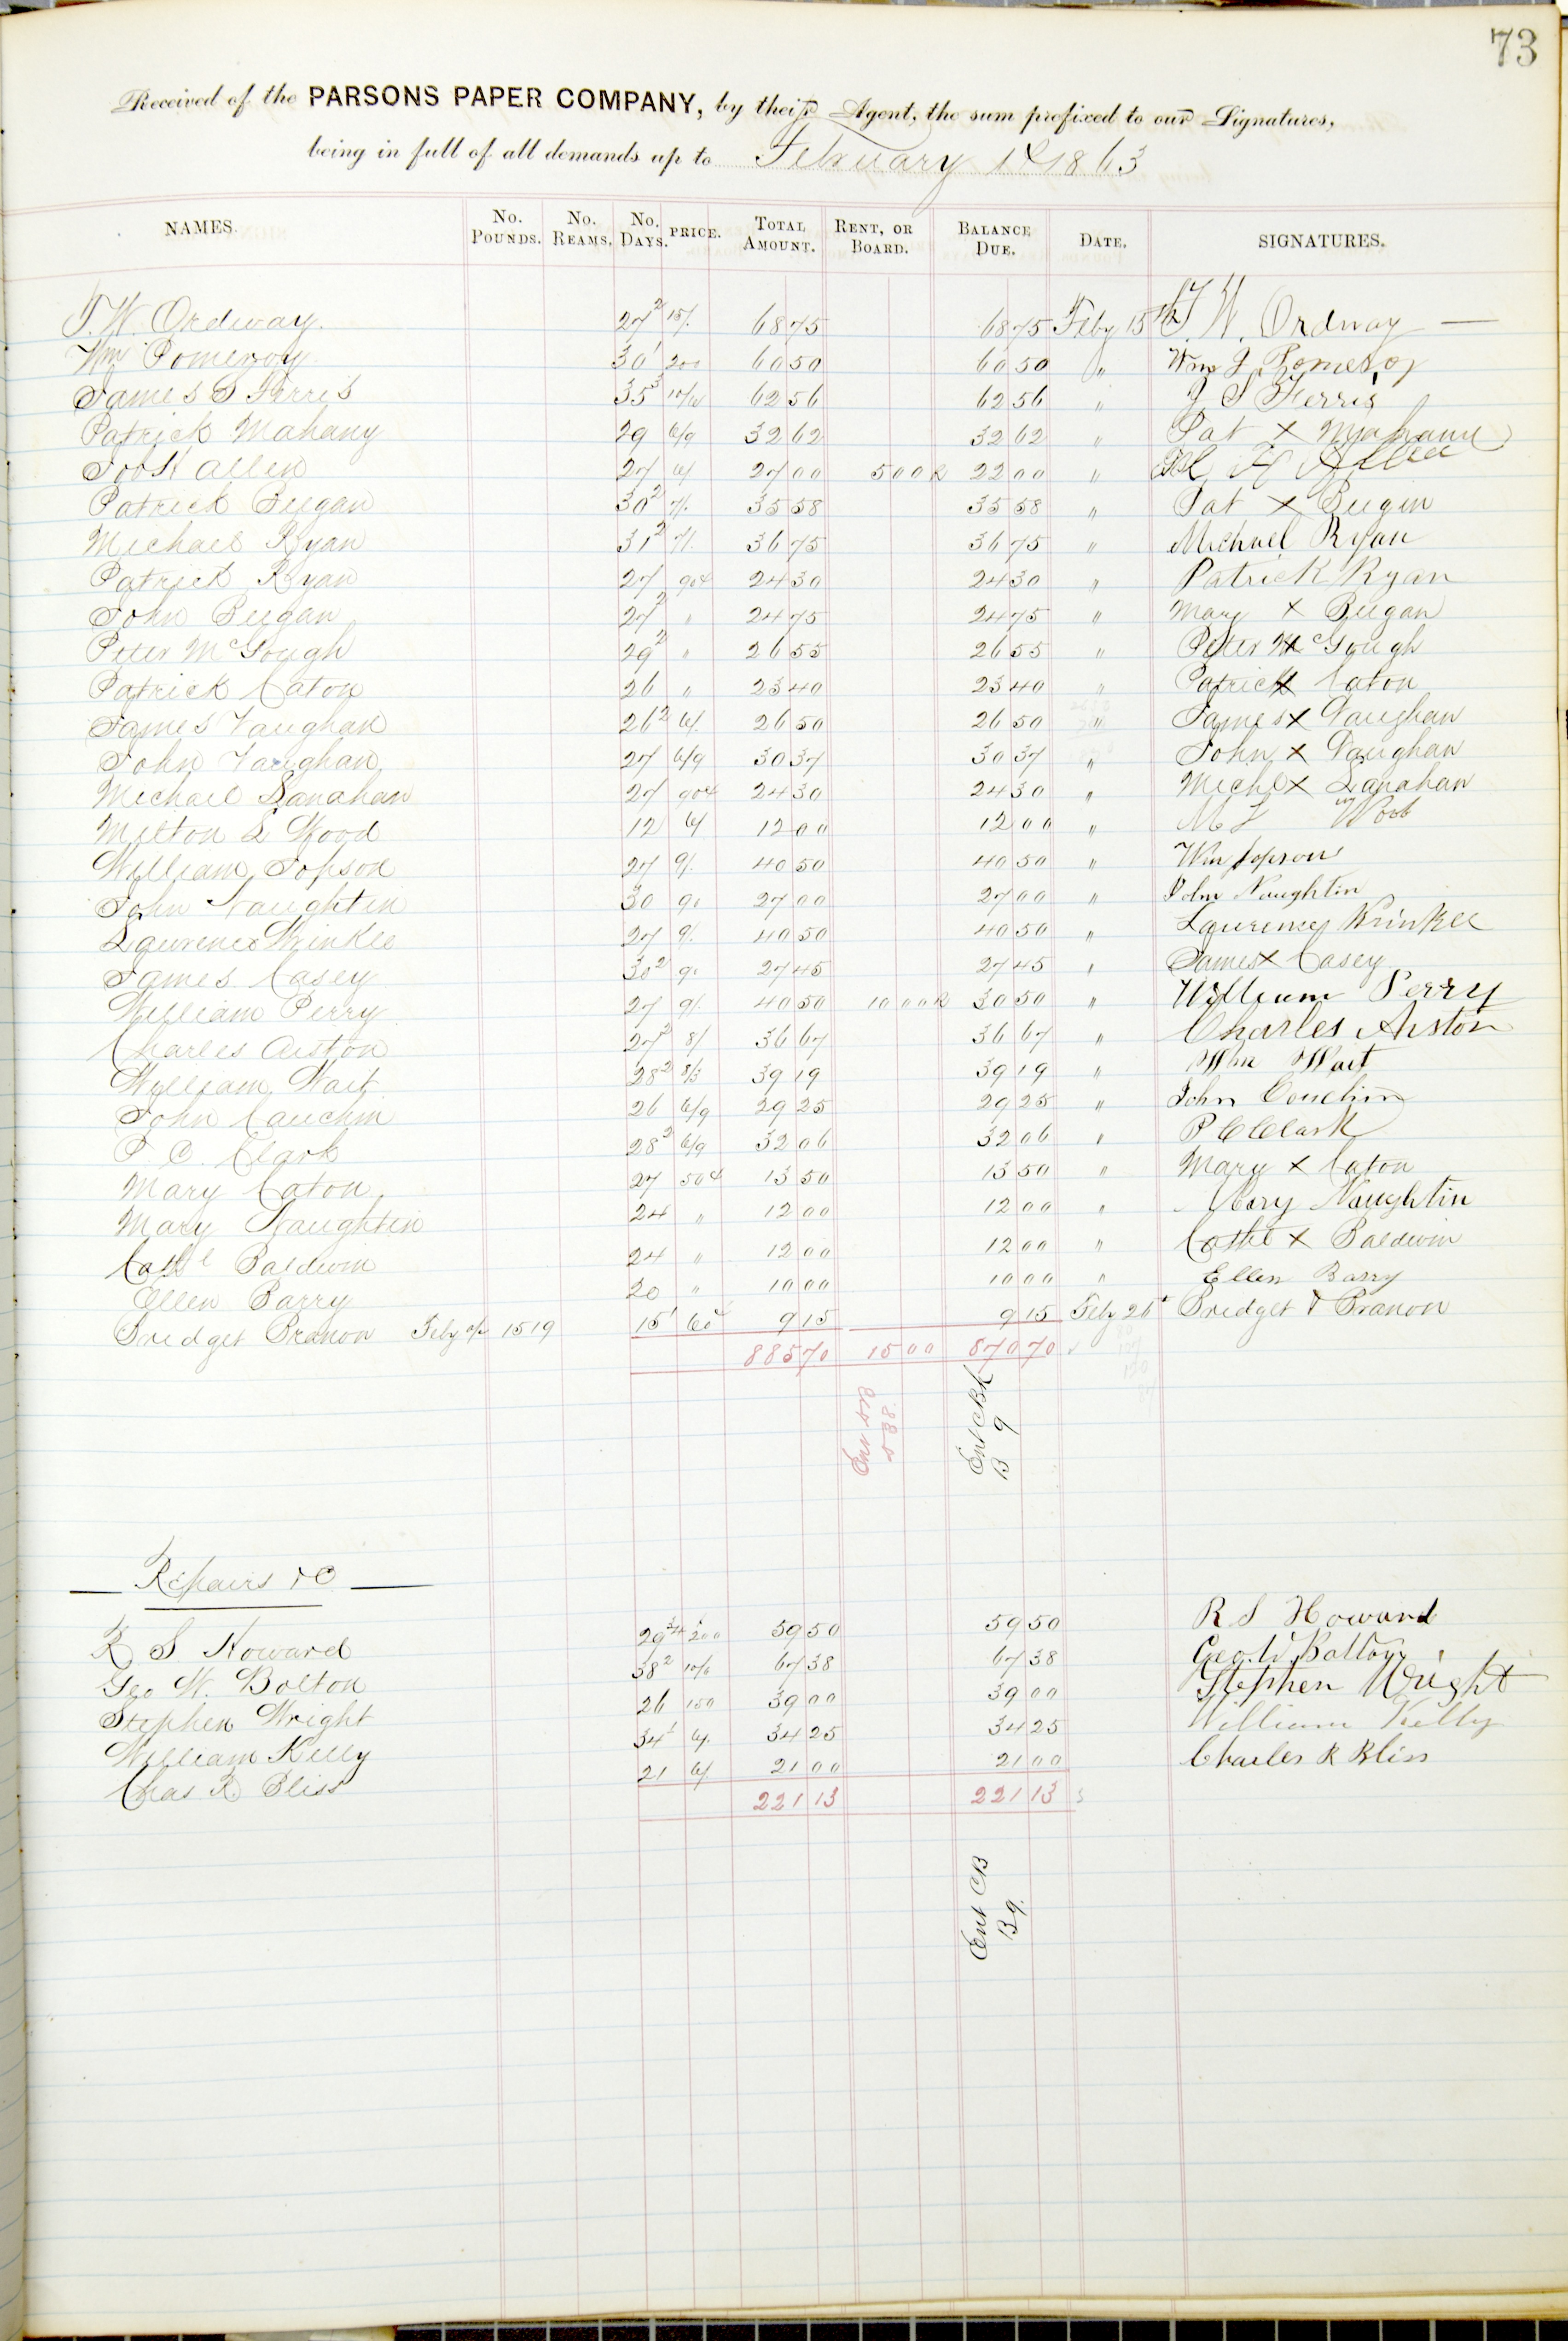 73
Received of the PARSONS PAPER COMPANY, by their Agent, the sum prefixed to our Signatures,
being in full of all demands up to February 1st 1863
NAMES. No. POUNDS. No. REAMS. No. DAYS. PRICE. TOTAL AMOUNT. RENT, OR BOARD. BALANCE DUE. DATE. SIGNATURES.
T. W. Ordway. 27² 15/. 68 75 68 75 Feby 15th T. W. Ordway
Wm Pomeroy 30¹ 200 60 50 60 50 " Wm J Pomeroy
James S Ferris 35³ 10/6 62 56 62 56 " J S Ferris
Patrick Mahany 29 6/9 32 62 32 62 " Pat X Mahany
Job H Allen 27 6/ 27 00 5 00 R 22 00 " H Allen
Patrick Beegan 30² 7/. 35 58 35 58 " Pat X Beegin
Michael Ryan 31² 7/. 36 75 36 75 " Michael Ryan
Patrick Ryan 27 90¢ 24 30 24 30 " Patrick Ryan
John Beegan 27² " 24 75 24 75 " Mary X Beegan
Peter McGough 29² " 26 55 26 55 " Peter X McGough
Patrick Caton 26 " 23 40 23 40 " Patrick X Caton
James Vaughan 26² 6/. 26 50 26 50 " James X Vaughan
John Vaughan 27 6/9 30 37 30 37 " John X Vaughan
Michael Lanahan 27 90¢ 24 30 24 30 " Michl X Lanahan
Milton L Wood 12 6/ 12 00 12 00 " M L Wood
William Jopson 27 9/. 40 50 40 50 " Wm Jopson
John Naughtin 30 90 27 00 27 00 " John Naughtin
Lawrence Krinkle 27 9/. 40 50 40 50 " Laurence Krinkle
James Casey 30² 90 27 45 27 45 " James X Casey
William Perry 27 9/. 40 50 10 00 R 30 50 " William Perry
Charles Aiston 27² 8/ 36 67 36 67 " Charles Aiston
William Wait 28² 8/3 39 19 39 19 " Wm Wait
John Cauchin 26 6/9 29 25 29 25 " John Couchin
P. C. Clark 28² 6/9 32 06 32 06 " P C Clark
Mary Caton 27 50¢ 13 50 13 50 " Mary X Caton
Mary Naughtin 24 " 12 00 12 00 " Mary Naughtin
Cathe Baldwin 24 " 12 00 12 00 " Cathe X Baldwin
Ellen Barry 20 " 10 00 10 00 " Ellen Barry
Bridget Branon Feby 15 19 15¹ 60¢ 9 15 9 15 Feby 26t Bridget X Branon
885 70 15 00 870 70
Ent 538
Ent CBk B 9
Repairs &C
R S Howard 29 3/4 200 59 50 59 50 R S Howard
Geo W. Bolton 38² 10/6 67 38 67 38 Geo. W. Bolton
Stephen Wright 26 150 39 00 39 00 Stephen Wright
William Kelly 34¹ 6/. 34 25 34 25 William Kelly
Chas R. Bliss 21 6/ 21 00 21 00 Charles R Bliss
221 13 221 13
Ent CB B 9.